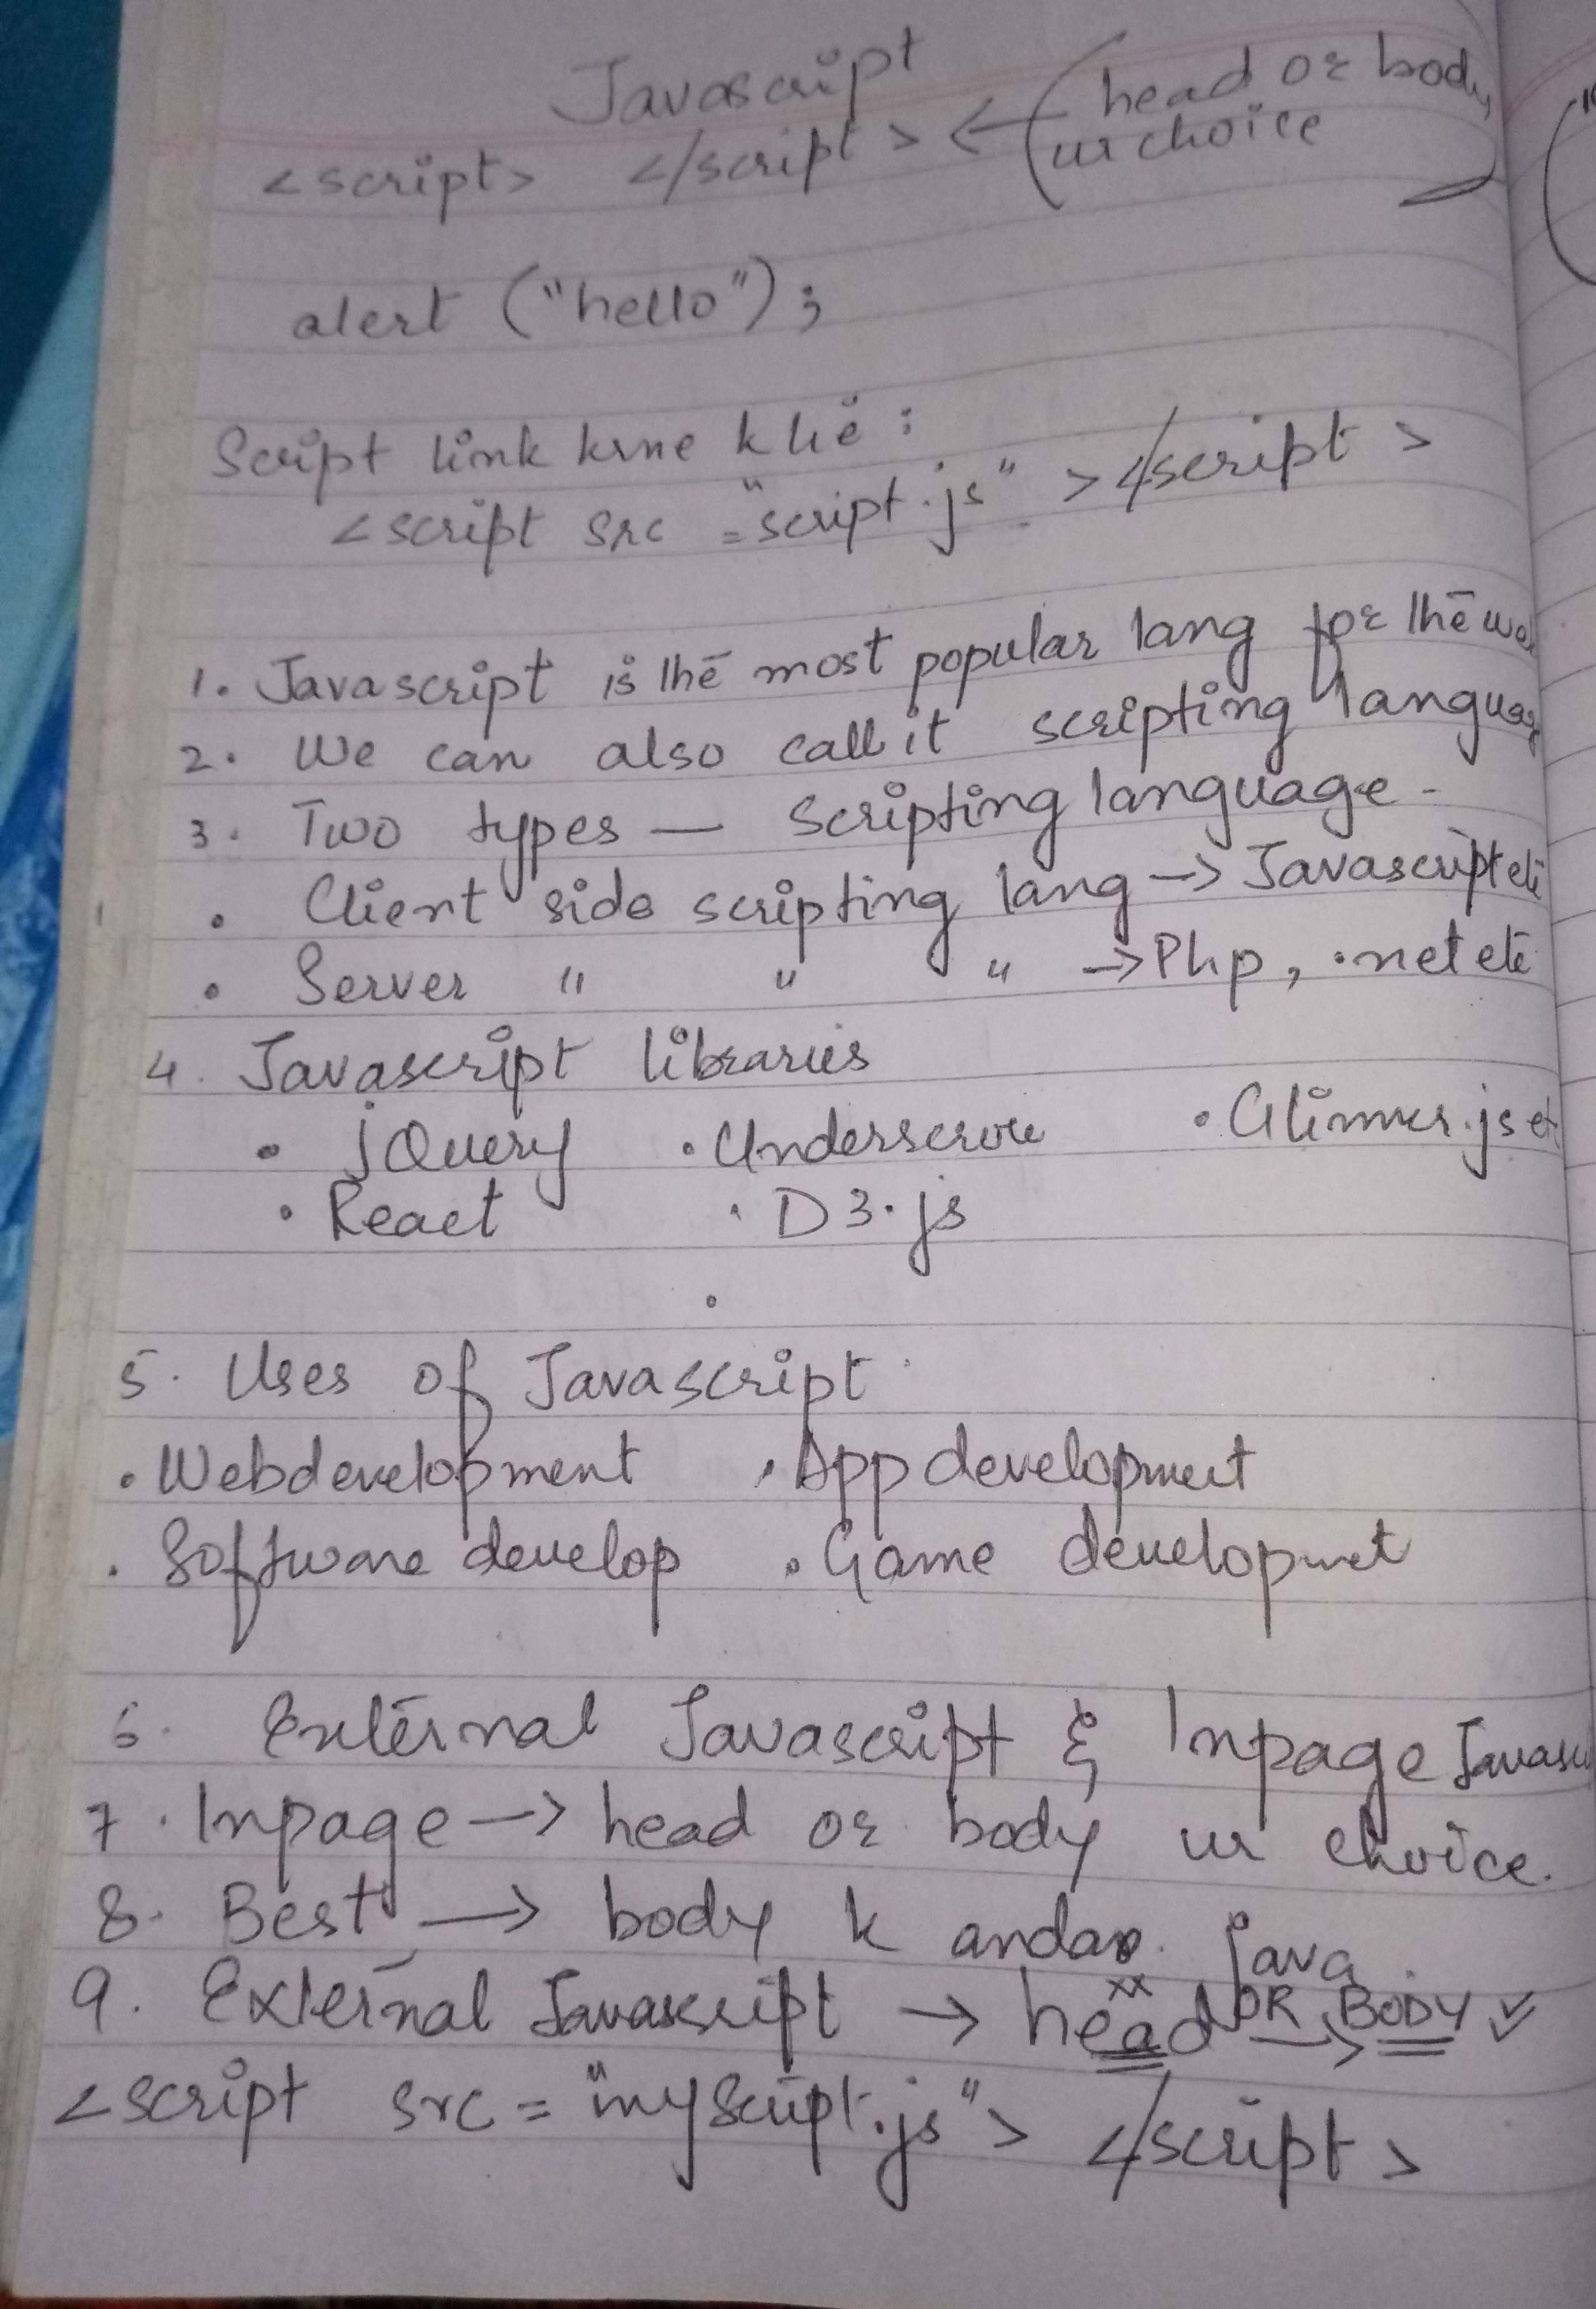 Javascript
<script> </script> ← (head or body
ur choice
alert ("hello");
Script link krne k lie :
<script src = "script.js" > </script >
1. Javascript is the most popular lang for the
2. We can also call it scripting language
3. Two types — Scripting language -
• Client side scripting lang → Javascript etc
• Server " " " → Php, .net etc
4. Javascript libraries
• jQuery • Underscrore • Glimmer.js
• React • D3.js
5. Uses of Javascript
• Webdevelopment • App development
• Software develop • Game developmet
6. External Javascript & Inpage
7. Inpage → head or body ur choice.
8. Best → body k andar java
9. External Javascript → head OR → BODY ✓
<script src = "myscript.js"> </script>